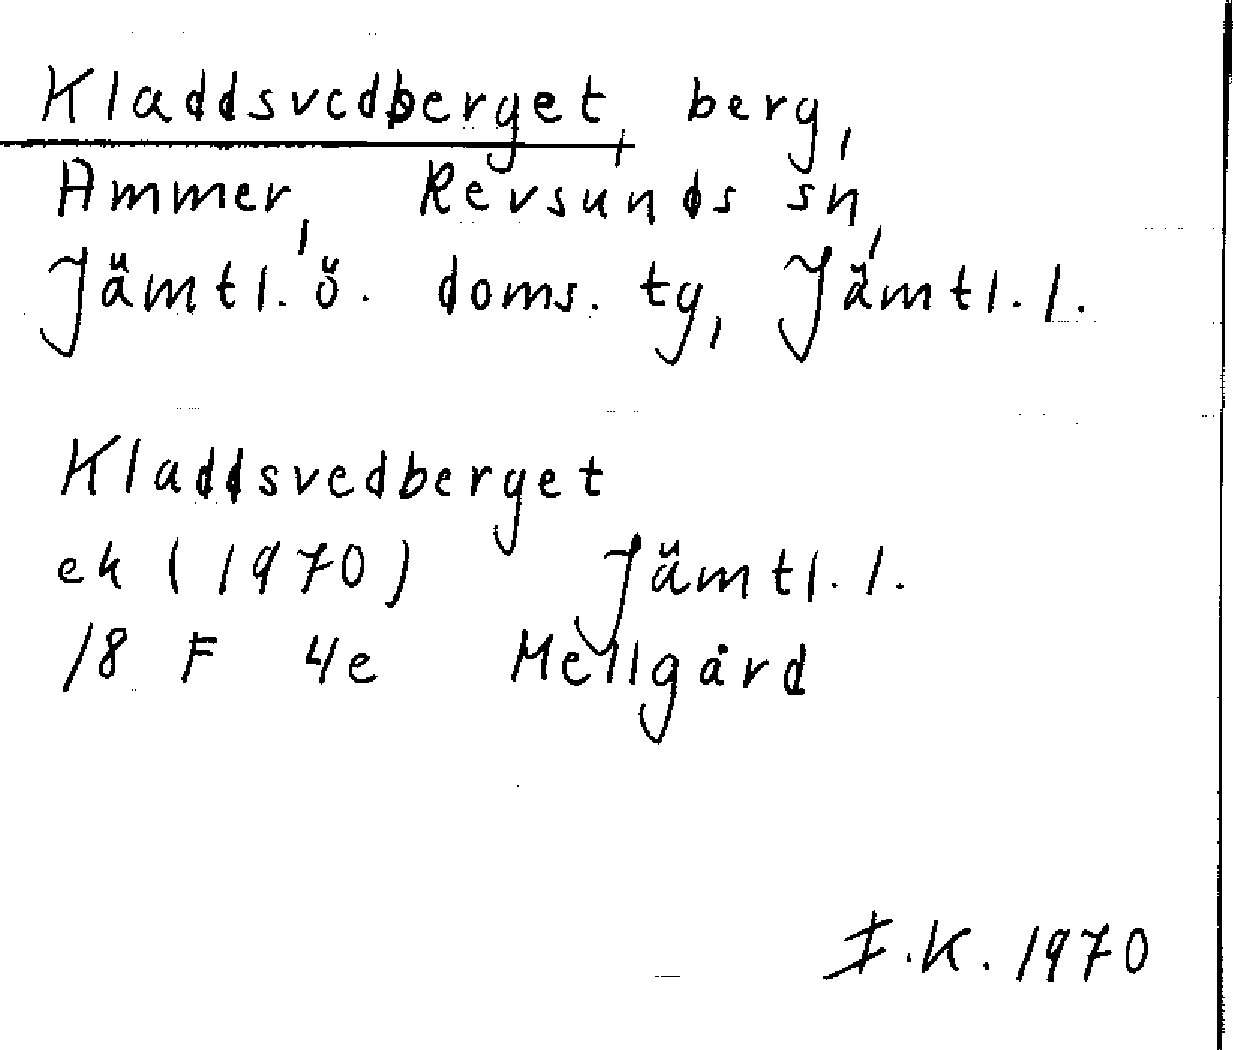 Kladdsvedberget, berg,
Ammer, Revsunds sn,
Jämtl. ö. doms. tg, Jämtl. l.
Kladdsvedberget
ek (1970) Jämtl. l.
18 F 4e Mellgård
I.K. 1970